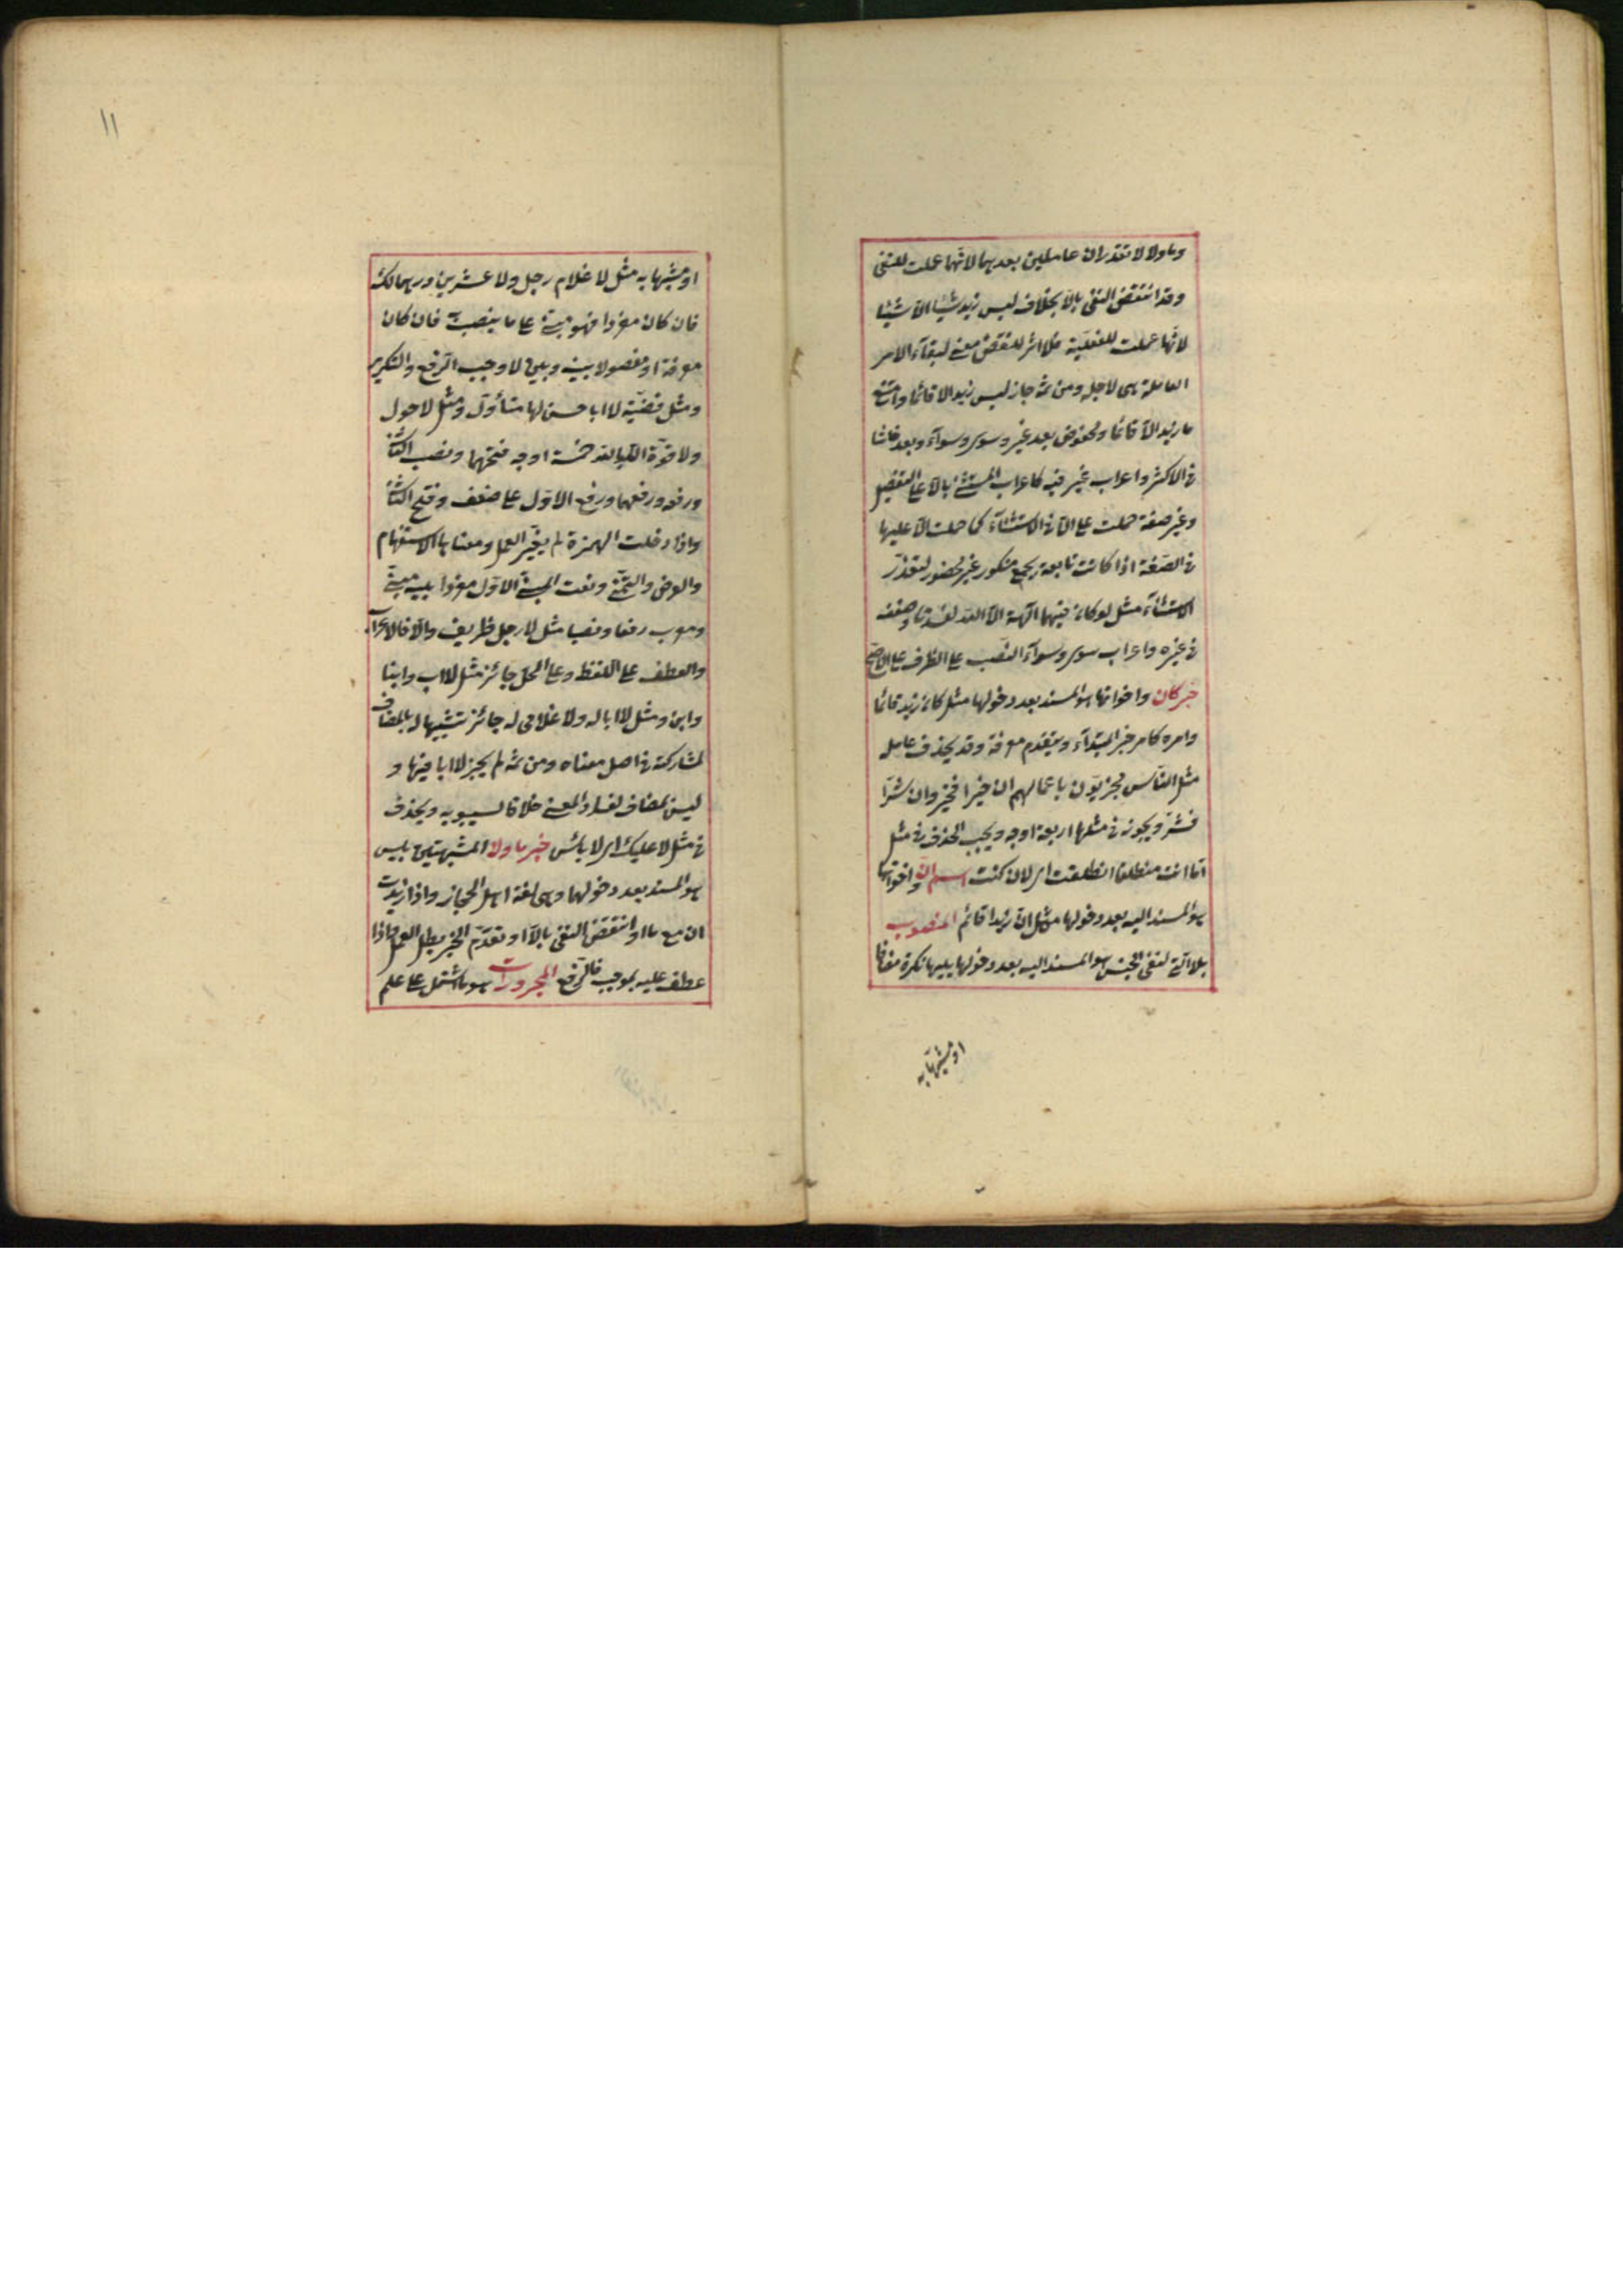 وما ولا لا تقدران عاملتين بعدهما لانهما عملت للنفى
وقد انتقض النفى بالا بخلاف ليس زيد شيئا الا شيئا
لانها عملت للفعلية فلا اثر للنقض معنى لبقاء الامر
العاملة هى لاجله ومن ثم جاز ليس زيد الا قائما وامتنع
ما زيد الا قائما ومخفوض بعد غير وسوى وسواء وبعد حاشا
فى الاكثر واعراب غير فيه كاعراب المستثنى بالا على التفصيل
وغير صفة حملت على الا فى الاستثناء كما حملت الا عليها
فى الصفة اذا كانت تابعة لجمع منكور غير محصور لتعذر
الاستثناء مثل لو كان فيهما آلهة الا الله لفسدتا وضعف
فى غيره واعراب سوى وسواء النصب على الظرف على الاصح
خبر كان واخواتها هو المسند بعد دخولها مثل كان زيد قائما
وامره كامر خبر المبتداء ويتقدم معرفة وقد يحذف عامله
مثل الناس مجزيون باعمالهم ان خيرا فخير وان شرا
فشر ويجوز فى مثلها اربعة اوجه ويجب الحذف فى مثل
اما انت منطلقا انطلقت اى لان كنت اسم ان واخواتها
هو المسند اليه بعد دخولها مثل ان زيدا قائم المنصوب
بلا التى لنفى الجنس هو المسند اليه بعد دخولها يليها نكرة مضافا
او مشبها به
١١
او مشبها به مثل لا غلام رجل ولا عشرين درهما لك
فان كان مفردا فهو مبنى على ما ينصب به فان كان
معرفة او مفصولا بينه وبين لا وجب الرفع والتكرير
ومثل قضية لا ابا حسن لها متأول ومثل لا حول
ولا قوة الا بالله خمسة اوجه فتحهما ونصب الثانى
ورفعه ورفعهما ورفع الاول على ضعف وفتح الثانى
واذا دخلت الهمزة لم يغير العمل ومعناها الاستفهام
والعرض والتمنى ونعت المبنى الاول مفردا يليه مبنى
ومعرب رفعا ونصبا مثل لا رجل ظريف والا فالاعراب
والعطف على اللفظ وعلى المحل جائز مثل لا اب وابنا
وابن ومثل لا ابا له ولا غلامى له جائز تشبيها له بالمضاف
لمشاركته فى اصل معناه ومن ثم لم يجز لا ابا فيها و
ليس بمضاف لفساد المعنى خلافا لسيبويه ويحذف
فى مثل لا عليك اى لا بائس خبر ما ولا المشبهتين بليس
هو المسند بعد دخولهما وهى لغة اهل الحجاز واذا زيدت
ان مع ما او انتقض النفى بالا او تقدم الخبر بطل العمل واذا
عطف عليه بموجب فالرفع المجرورات هو ما اشتمل على علم